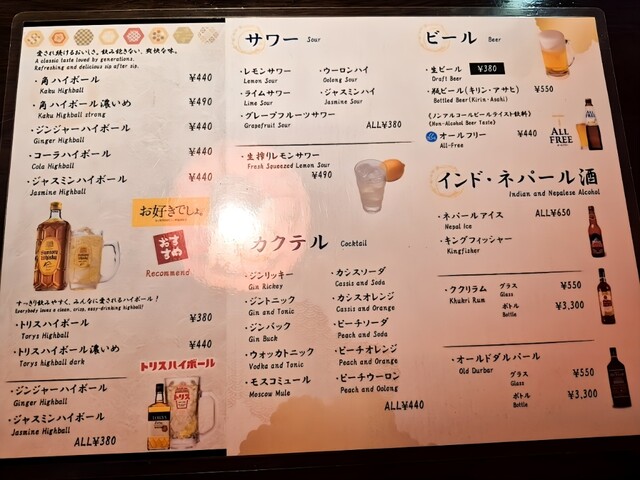 愛され続けるおいしさ。飲み飽きない、爽快な味。
A classic taste loved by generations.
Refreshing and delicious sip after sip.
・角ハイボール ¥440
Kaku Highball
・角ハイボール濃いめ ¥490
Kaku Highball strong
・ジンジャーハイボール ¥440
Ginger Highball
・コーラハイボール ¥440
Cola Highball
・ジャスミンハイボール ¥440
Jasmine Highball
お好きでしょ。
おすすめ
Recommend
すっきり飲みやすく、みんなに愛されるハイボール！
Everybody loves a clean, crisp, easy-drinking highball!
・トリスハイボール ¥380
Torys Highball
・トリスハイボール濃いめ ¥440
Torys highball dark
トリスハイボール
・ジンジャーハイボール
Ginger Highball
・ジャスミンハイボール
Jasmine Highball
ALL¥380
トリス
サワー Sour
・レモンサワー
Lemon Sour
・ウーロンハイ
Oolong Sour
・ライムサワー
Lime Sour
・ジャスミンハイ
Jasmine Sour
・グレープフルーツサワー
Grapefruit Sour
ALL¥380
・生搾りレモンサワー
Fresh Squeezed Lemon Sour
¥490
カクテル Cocktail
・ジンリッキー
Gin Rickey
・カシスソーダ
Cassis and Soda
・ジントニック
Gin and Tonic
・カシスオレンジ
Cassis and Orange
・ジンバック
Gin Buck
・ピーチソーダ
Peach and Soda
・ウォッカトニック
Vodka and Tonic
・ピーチオレンジ
Peach and Orange
・モスコミュール
Moscow Mule
・ピーチウーロン
Peach and Oolong
ALL¥440
ビール Beer
・生ビール ¥380
Draft Beer
・瓶ビール(キリン・アサヒ) ¥550
Bottled Beer(Kirin・Asahi)
(ノンアルコールビールテイスト飲料)
(Non-Alcohol Beer Taste)
オールフリー ¥440
All-Free
ALL FREE
インド・ネパール酒
Indian and Nepalese Alcohol
・ネパールアイス ALL¥650
Nepal Ice
・キングフィッシャー
Kingfisher
・ククリラム グラス ¥550
Khukri Rum Glass
ボトル ¥3,300
Bottle
・オールドダルバール
Old Durbar グラス ¥550
Glass
ボトル ¥3,300
Bottle